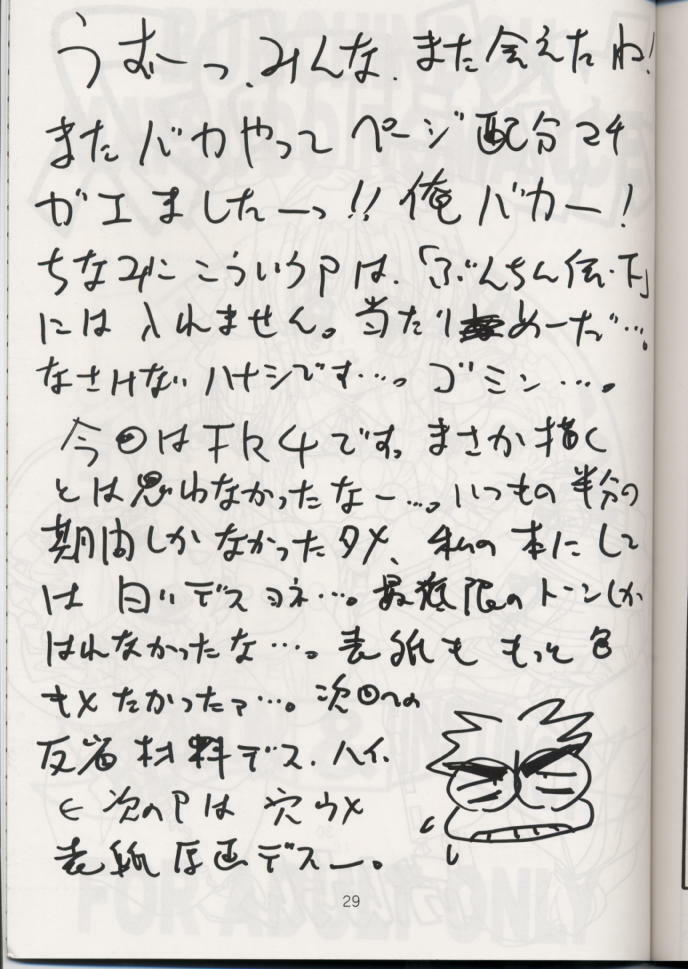 うむーっ、みんな、また会えたね!
またバカやってページ配分マチ
ガエましたーっ!!俺バカー!
ちなみにこういうPは、「ぶんちん伝・下」
には入れません。当たりめーだ…。
なさけないハナシです…。ゴミン…。
今回はFR4です。まさか描く
とは思わなかったなー…。いつもの半分の
期間しかなかったタメ、私の本にして
は白いデスヨネ…。最低限のトーンしか
はれなかったな…。表紙ももっと色
キメたかったァ…。次回への
反省材料デス、ハイ、
← 次のPは穴ウメ
表紙原画デスー。
29
FOR ADULT ONLY